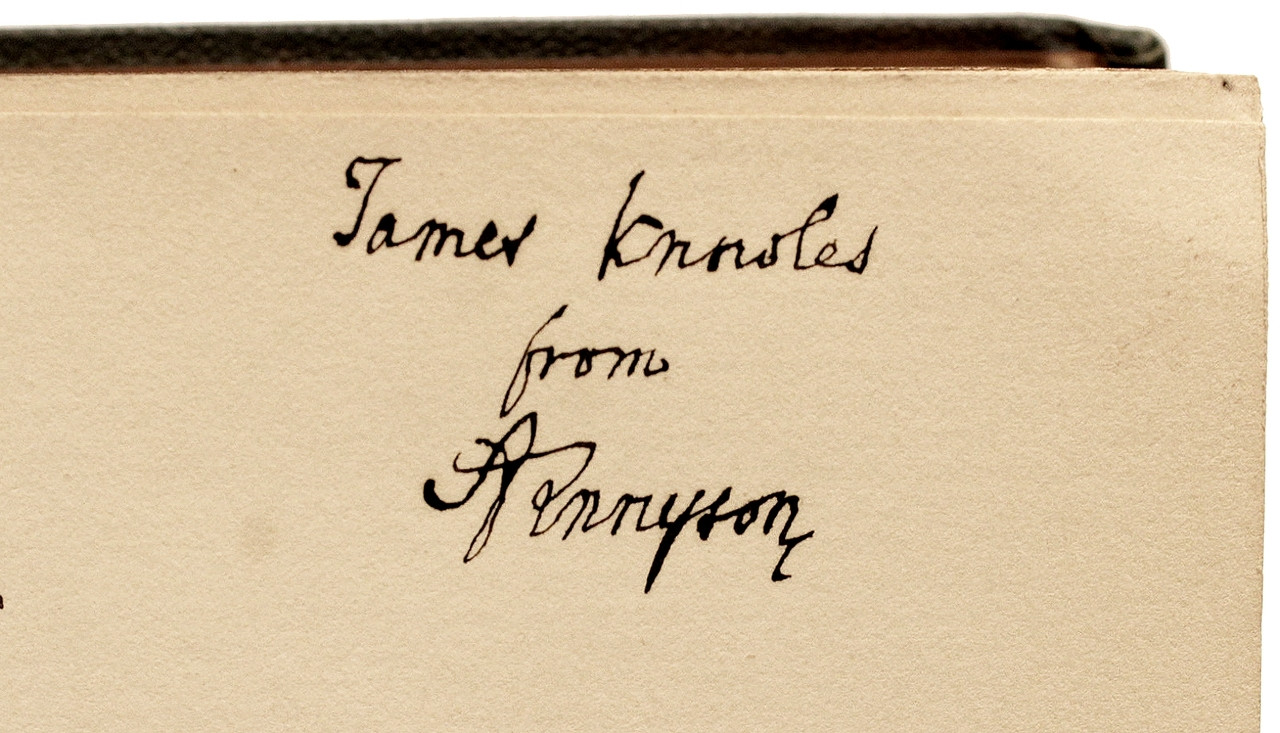 James Knowles
from
A Tennyson